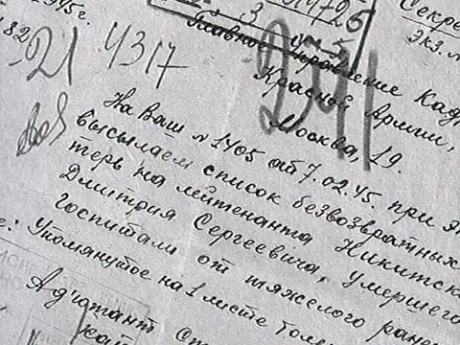 1945г.
3
14726
Секре
Экз. №
182
21 4317
Главное управление Кад
Красной Армии,
Москва, 19.
На Ваш № 1405 от 7.02.45. при э
высылаем список безвозвратных
терь на лейтенанта Никитск
Дмитрия Сергеевича, умершего
госпитали от тяжелого ране
е: Упомянутое на 1 листе толь
Адъютант ст
кап